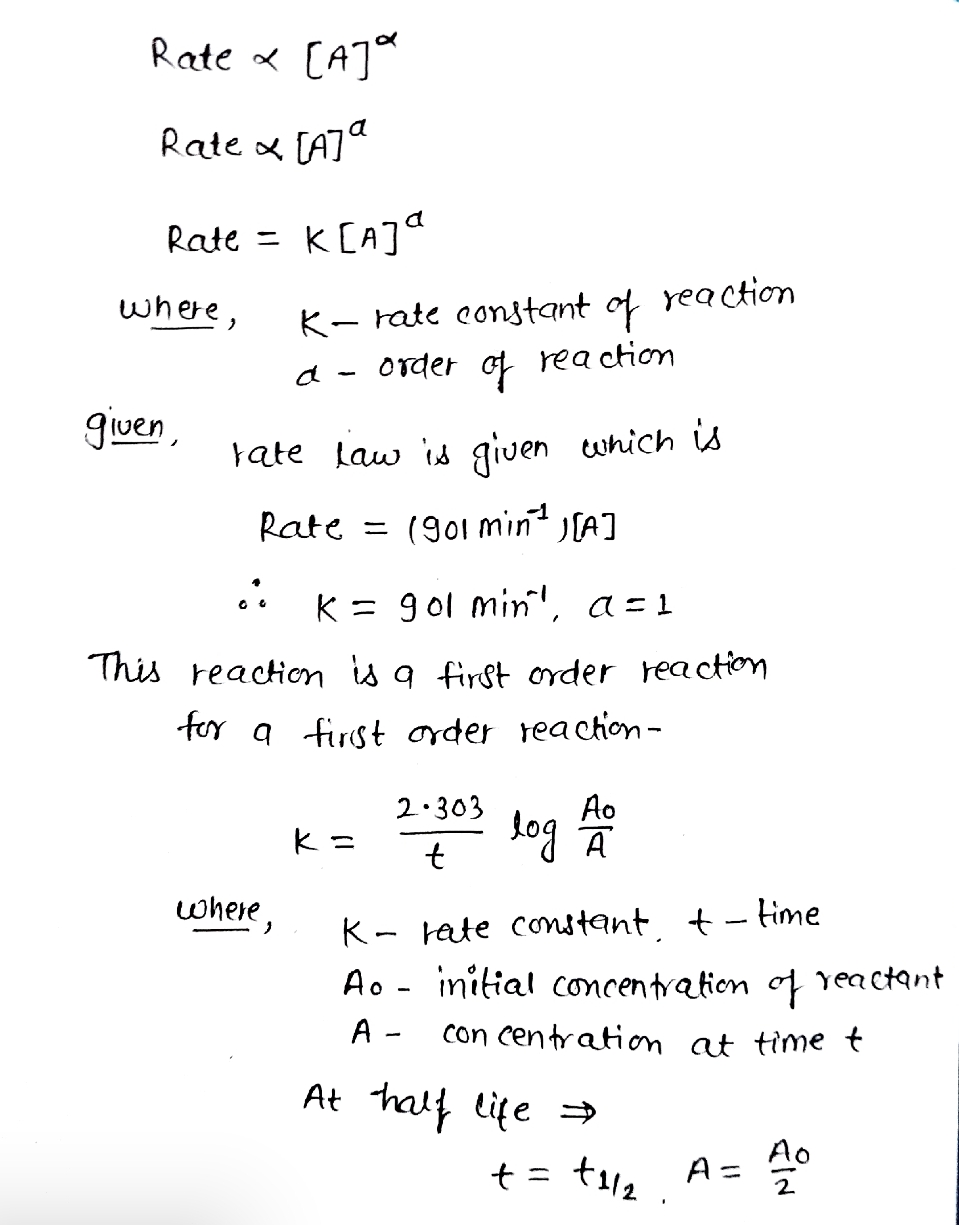 Rate ∝ [A]^α
Rate ∝ [A]^a
Rate = K[A]^a
where, K – rate constant of reaction
a – order of reaction
given, rate law is given which is
Rate = (901 min⁻¹)[A]
∴ K = 901 min⁻¹, a = 1
This reaction is a first order reaction
for a first order reaction –
K = 2.303/t log A₀/A
where, K – rate constant, t – time
A₀ – initial concentration of reactant
A – concentration at time t
At half life ⇒
t = t1/2, A = A₀/2